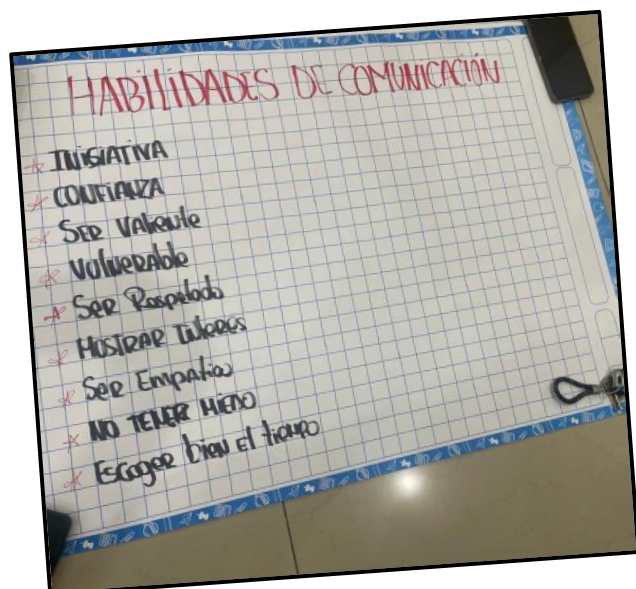 HABILIDADES DE COMUNICACIÓN
INISIATIVA
CONFIANZA
SER VAliente
VulneRAble
SeR Respetado
MOSTRAR InteRes
SeR Empatico
NO TENER MIEDO
EscogeR bien el tiempo